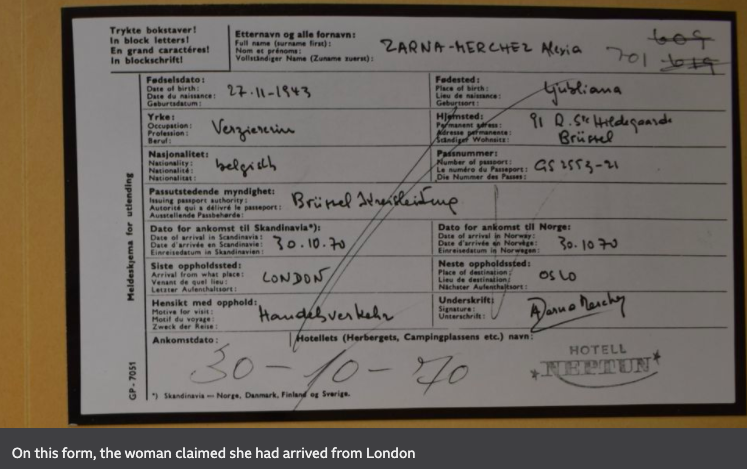 Trykte bokstaver!
In block letters!
En grand caractéres!
In blockschrift!
Etternavn og alle fornavn:
Full name (surname first):
Nom et prénoms:
Vollständiger Name (Zuname zuerst):
ZARNA-MERCHEZ Alexia
701
609
619
Meldeskjema for utlending
GP - 7051
Fødselsdato:
Date of birth:
Date du naissance:
Geburtsdatum:
27-11-1943
Fødested:
Place of birth:
Lieu de naissance:
Geburtsort:
Ljubliana
Yrke:
Occupation:
Profession:
Beruf:
Verziererin
Hjemsted:
Permanent adress:
Adresse permanente:
Ständiger Wohnsitz:
91 R. Ste Hildegaarde
Brüssel
Nasjonalitet:
Nationality:
Nationalité:
Nationalität:
belgisch
Passnummer:
Number of passport:
Le numéro du Passeport:
Die Nummer des Passes:
GS 2553-21
Passutstedende myndighet:
Issuing passport authority:
Autorité qui a délivré le passeport:
Ausstellende Passbehörde:
Brüssel Kreisleitung
Dato for ankomst til Skandinavia*):
Date of arrival in Scandinavia:
Date d'arrivée en Scandinavie:
Einreisedatum in Skandinavien:
30.10.70
Dato for ankomst til Norge:
Date of arrival in Norway:
Date d'arrivée en Norvège:
Einreisedatum in Norwegen:
30.10 70
Siste oppholdssted:
Arrival from what place:
Venant de quel lieu:
Letzter Aufenthaltsort:
LONDON
Neste oppholdssted:
Place of destination:
Lieu de destination:
Nächster Aufenthaltsort:
OSLO
Hensikt med opphold:
Motive for visit:
Motif du voyage:
Zweck der Reise:
Handelsverkehr
Underskrift:
Signature:
Unterschrift:
Ankomstdato:
30-10-70
Hotellets (Herbergets, Campingplassens etc.) navn:
HOTELL
NEPTUN
*) Skandinavia — Norge, Danmark, Finland og Sverige.
On this form, the woman claimed she had arrived from London